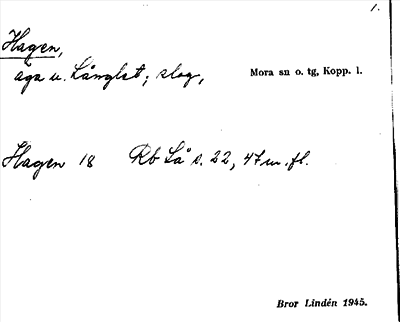 1.
Hagen,
äga u. Långlet; slog,
Mora sn o. tg, Kopp. l.
Hagen 18 Rb Lå s. 22, 47 m. fl.
Bror Lindén 1945.